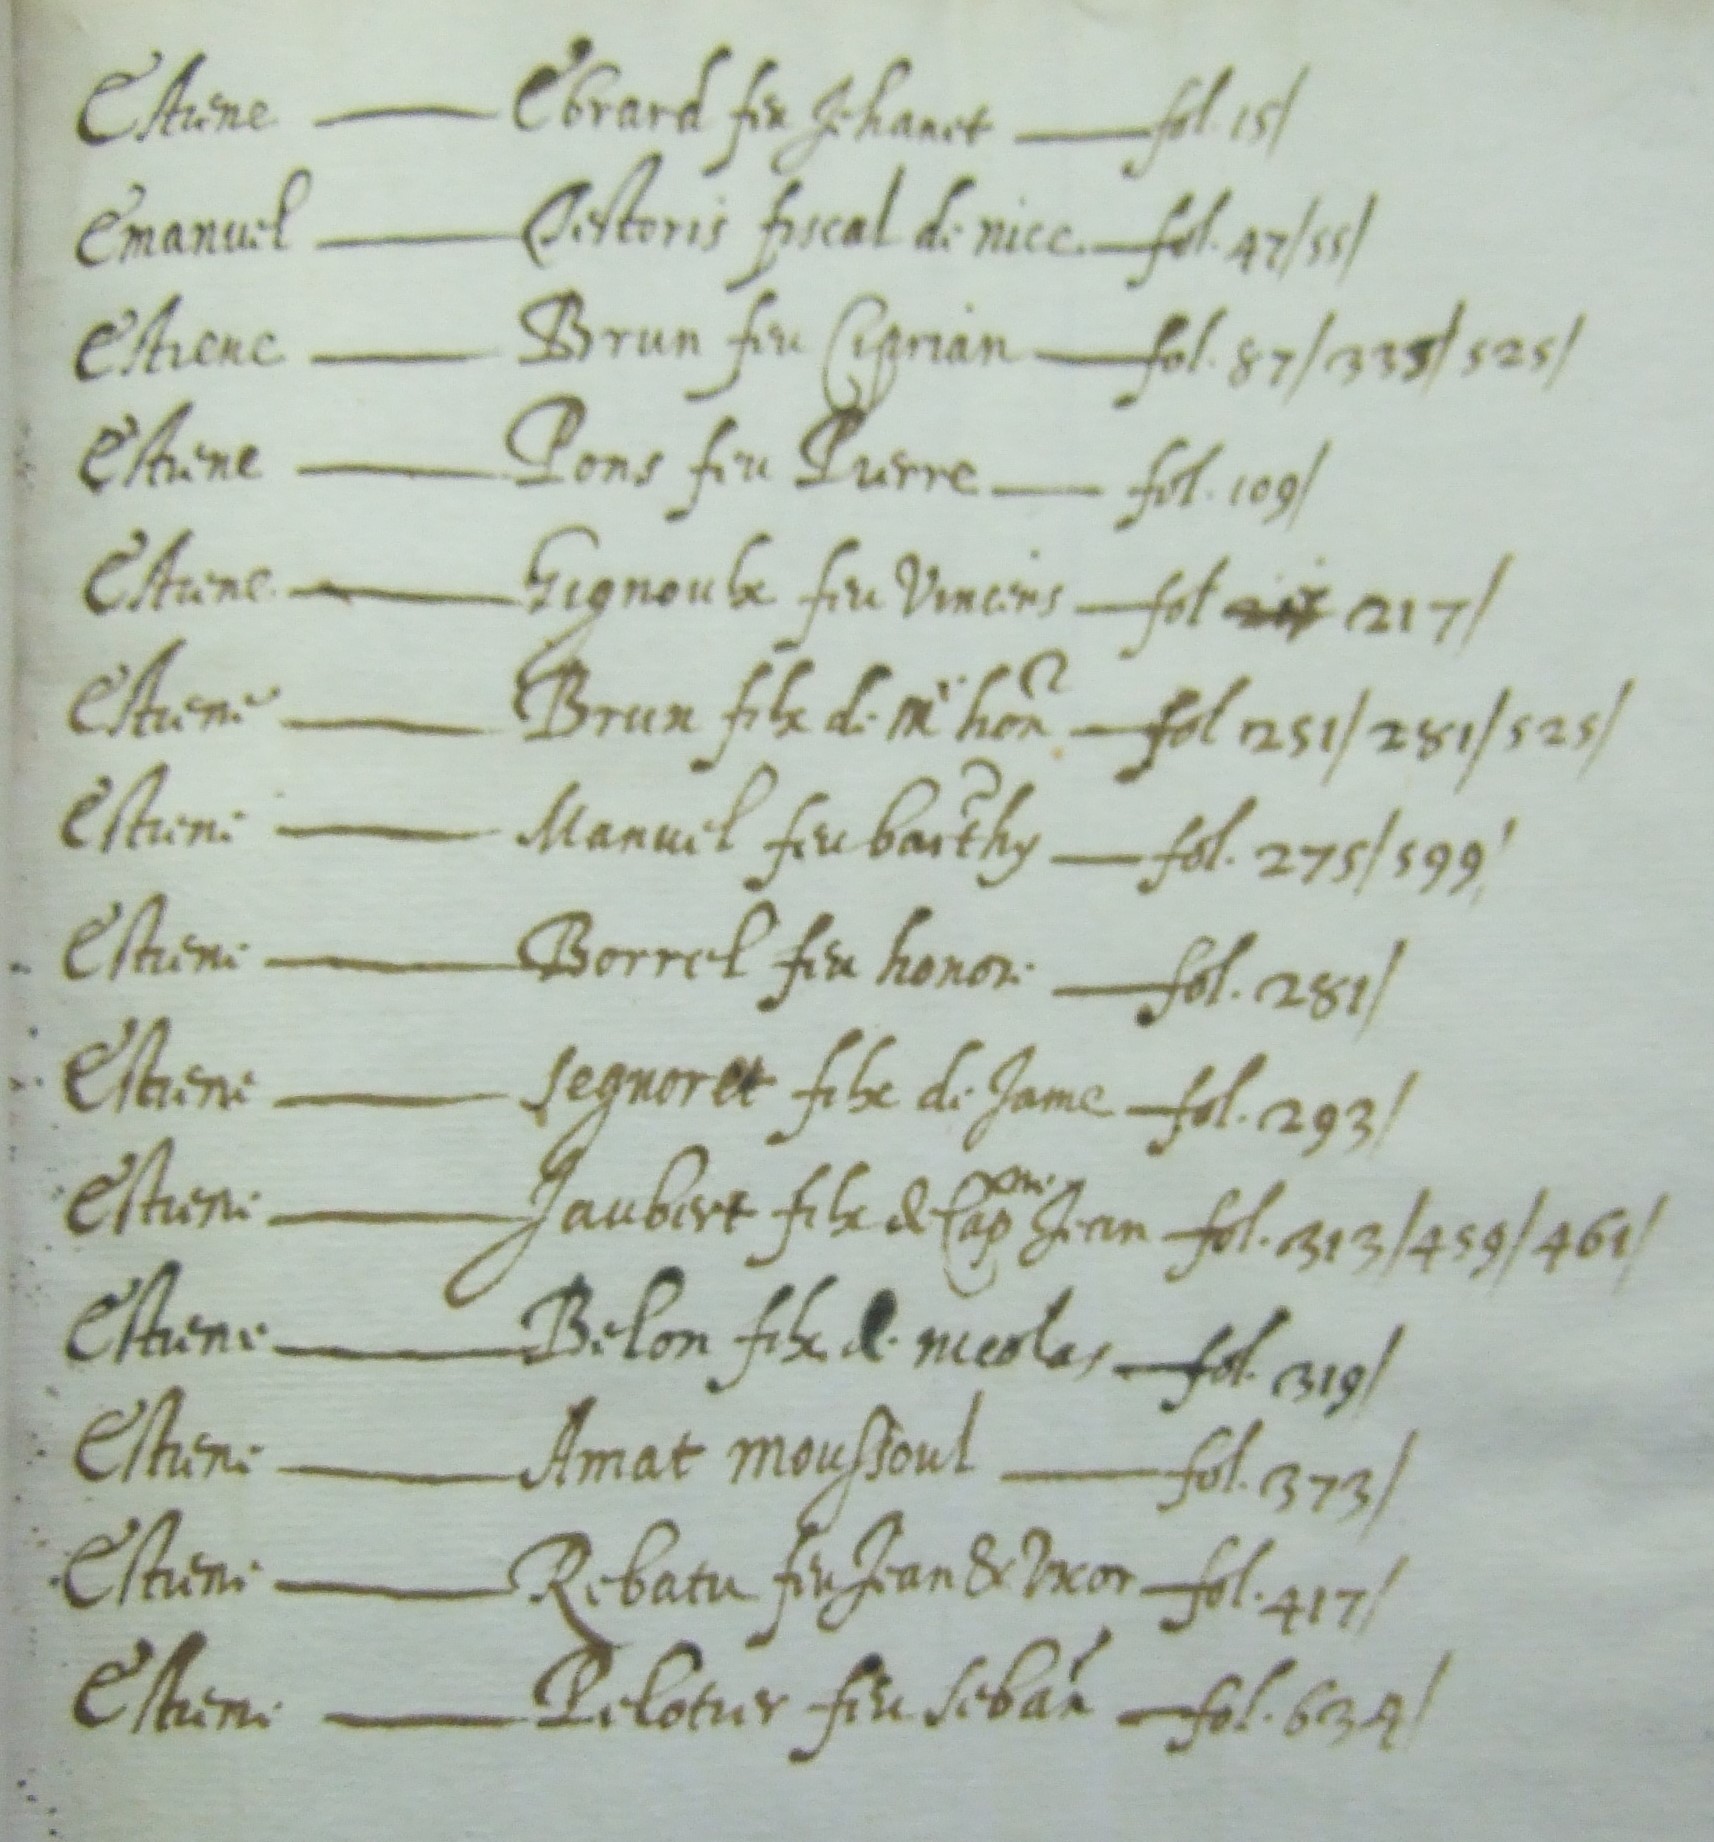 Estiene — Ebrard feu Jehanet — fol. 15/
Emanuel — Pestoris fiscal de nice — fol. 47/55/
Estiene — Brun feu Ciprian — fol. 87/335/525/
Estiene — Pons feu Pierre — fol. 109/
Estiene — Gignoulx feu Vincens — fol 217/
Estiene — Brun filx de Mr hon — fol 251/281/525/
Estiene — Manuel feu barthy — fol. 275/599/
Estiene — Borrel feu honore — fol. 281/
Estiene — segnoret filx de Jame — fol. 293/
Estiene — Jaubert filx de Cap Jean fol. 313/459/461/
Estiene — Belon filx de nicolas — fol. 319/
Estiene — Amat moussoul — fol. 373/
Estiene — Rebatu feu Jean & Vxor — fol. 417/
Estiene — Pelotier feu seban — fol. 634/